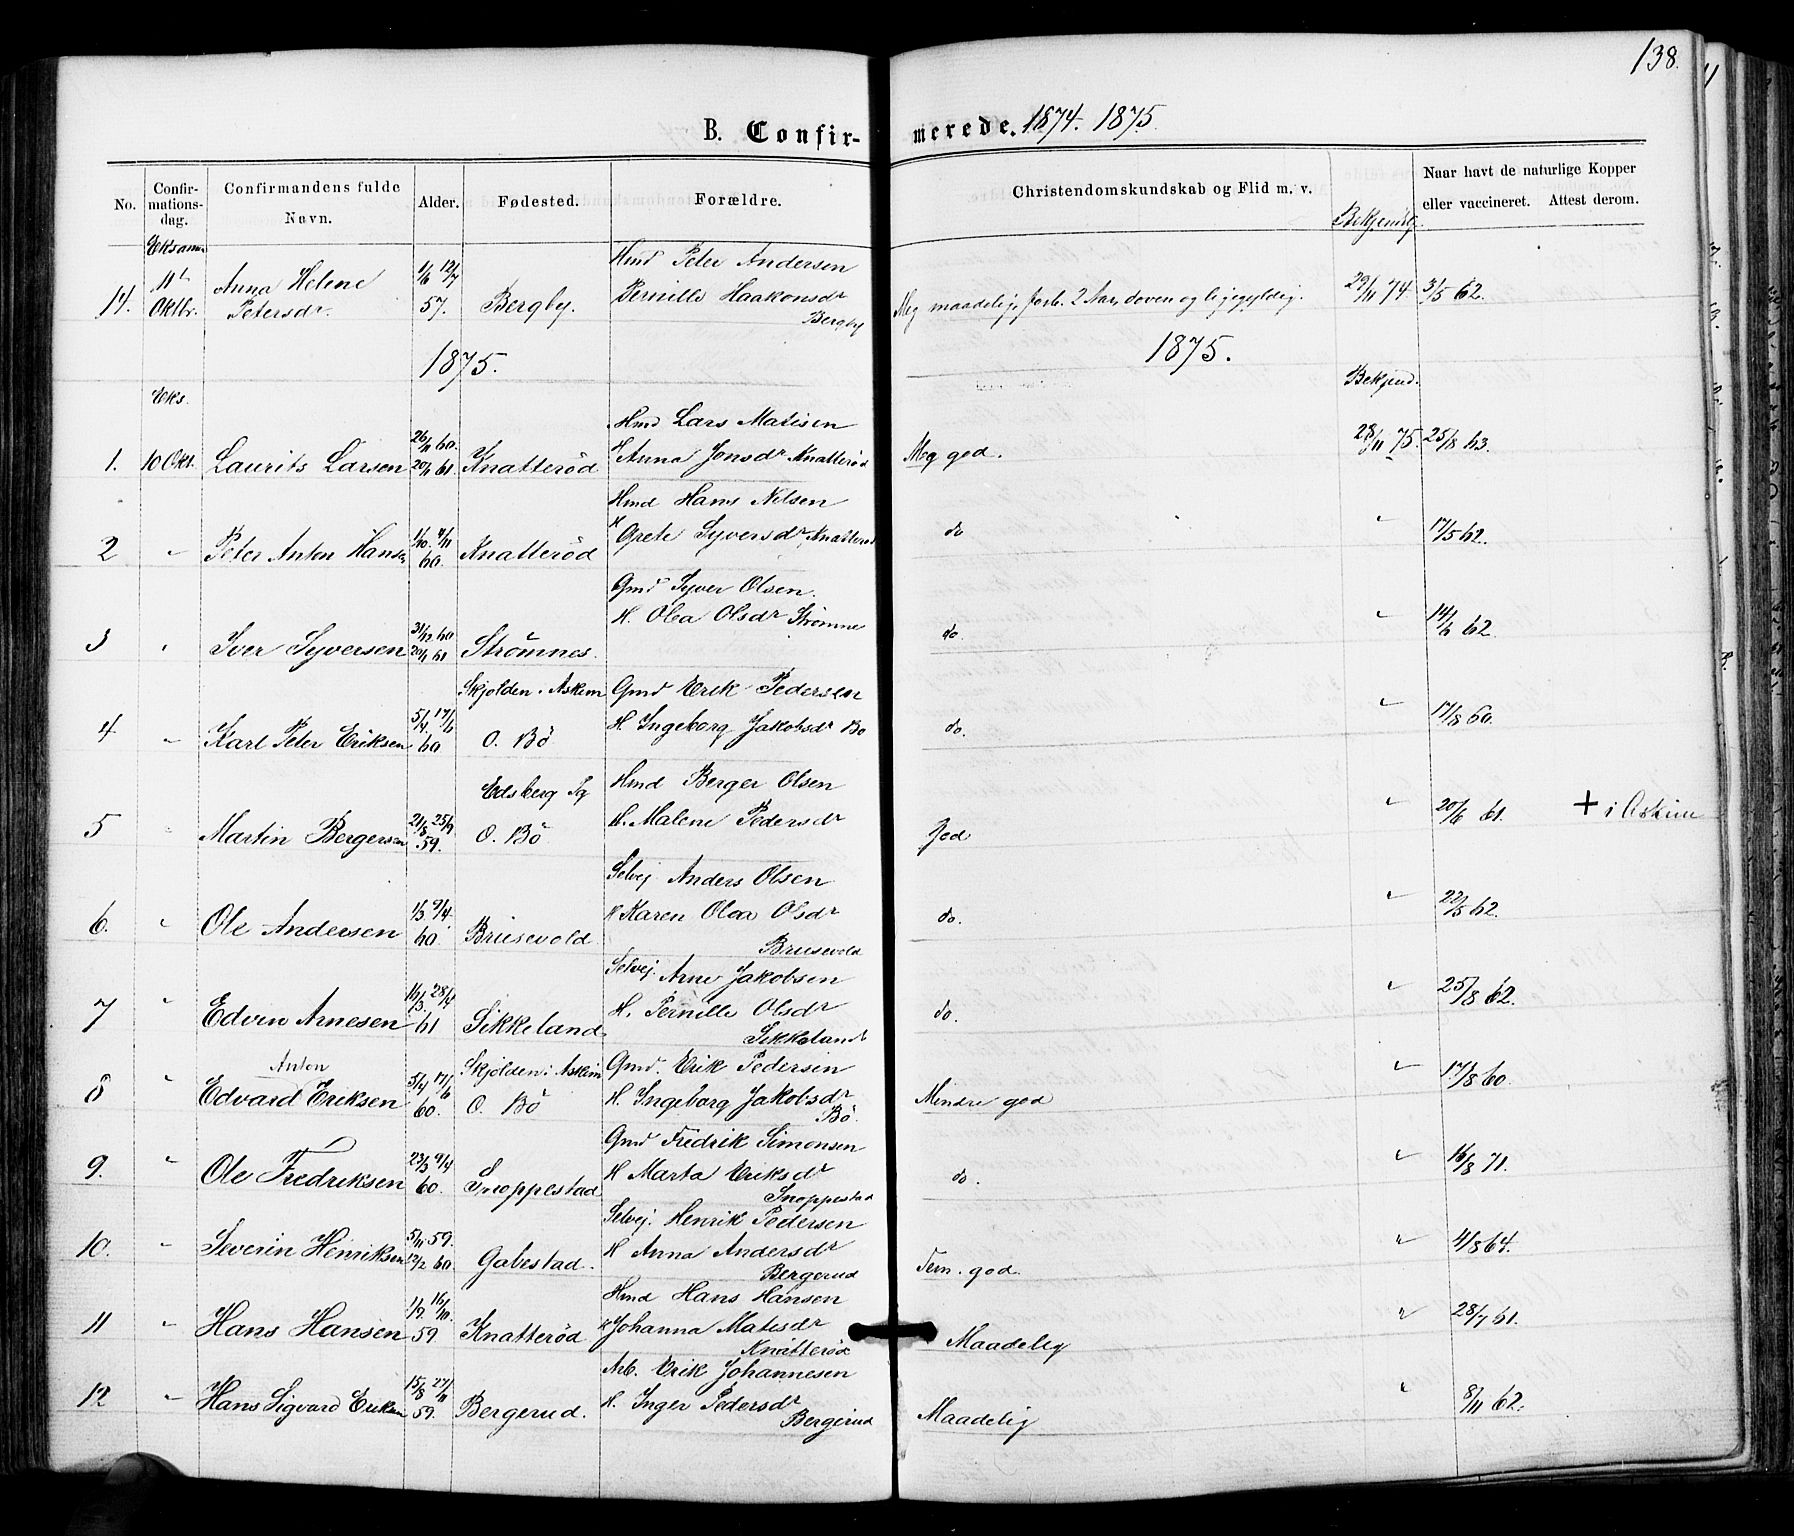 138.
B. Confirmerede. 1874. 1875
No. Confirmationsdag. Confirmandens fulde Navn. Alder. Fødested. Forældre. Christendomskundskab og Flid m. v. Bekjendt. Naar havt de naturlige Kopper eller vaccineret. Attest derom.
Eksamen
Hmd Peter Andersen
14. 11t Oktbr. Anna Helene Petersdr 1/6 12/7 57. Bergby. Pernille Haakonsdr Bergby Meg maadelig, forb. 2 Aar, doven og ligegyldig. 29/11 74. 3/5 62.
1875. 1875.
Eks. Bekjend.
Hmd Lars Matisen
1. 10 Okt. Laurits Larsen 26/11 60. 20/1 61. Knatterød H Anna Jonsdr Knatterød Meg god. 28/11 75. 25/8 63.
Hmd Hans Nilsen
2 " Peter Anton Hansen 1/10. 4/11 60. Knatterød H Grete Syversdr Knatterød do " 17/5 62.
Gmd Syver Olsen.
3 " Iver Syversen 31/12 60 20/1 61 Strømnes. H. Olea Olsdr Strømne do. " 14/6 62.
Skjolden i Askim Gmd Erik Pedersen
4 " Karl Peter Eriksen 5/4. 17/6 60 O. Bö H. Ingeborg Jakobsdr Bö do. " 17/8 60.
Edsberg Pg Hmd Berger Olsen
5 " Martin Bergersen 21/8 25/9 59. O. Bö H. Malene Pedersdr God " 20/6 61. + i Askim
Selvej. Anders Olsen
6. " Ole Andersen 1/3 9/4 60. Brusevold H Karen Olea Olsdr Brusevold do. " 22/5 62.
Selvej. Arne Jakobsen
7 " Edvin Arnesen 16/3. 28/4 61 Sikkeland H. Pernille Olsdr Sikkeland do. " 25/8 62.
Anton Skjolden i Askim Gmd. Erik Pedersen
8 " Edvard Eriksen 5/4 17/6 60. O. Bö H. Ingeborg Jakobsdr Bö. Mindre god " 17/8 60.
Gmd Fredrik Simonsen
9. " Ole Fredriksen 23/3 9/4 60. Snoppestad H Marta Eriksdr Snoppestad do. " 16/8 71.
Selvej. Henrik Pedersen
10. " Severin Henriksen 5/11 59. 12/2 60. Gabestad. H Anna Andersdr Bergerud Tem. god. " 4/8 64.
Hmd Hans Hansen
11 " Hans Hansen 1/9. 16/10. 59. Knatterød H Johanna Matisdr Knatterød Maadelig " 28/7 61.
Arb. Erik Johannesen
12 " Hans Sigvard Eriksen 15/8 27/11 59. Bergerud. H. Inger Pedersdr Bergerud Maadelig " 8/11 62.